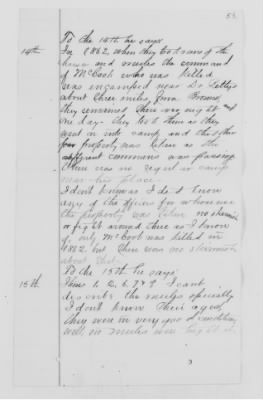 53
To the 14th he says
14th
In 1862, when they took some of the
horses and mules the command
of McCook who was killed
was encamped near Dr
about three miles from
they remained there one night and
one day. they took them as they
went in into camp and the other
property was taken as the
different commands was passing
There was no regular camp
near his place
I dont know as I do know
any of the officers for whose use
the property was taken no skirmish
or fight around there as I know
of only McCook was killed in
1862, but there was no skirmish
about that.
To the 15th he says:
15th
Item 1, 2, 6, 7 & 9 I cant
describe the mules specially
I dont know their ages,
they were in very good condition